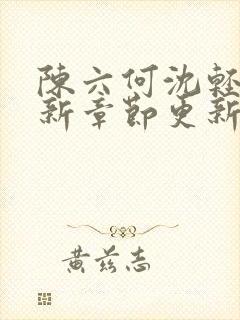 陳六何沈輕
新章節更新
黃茲志